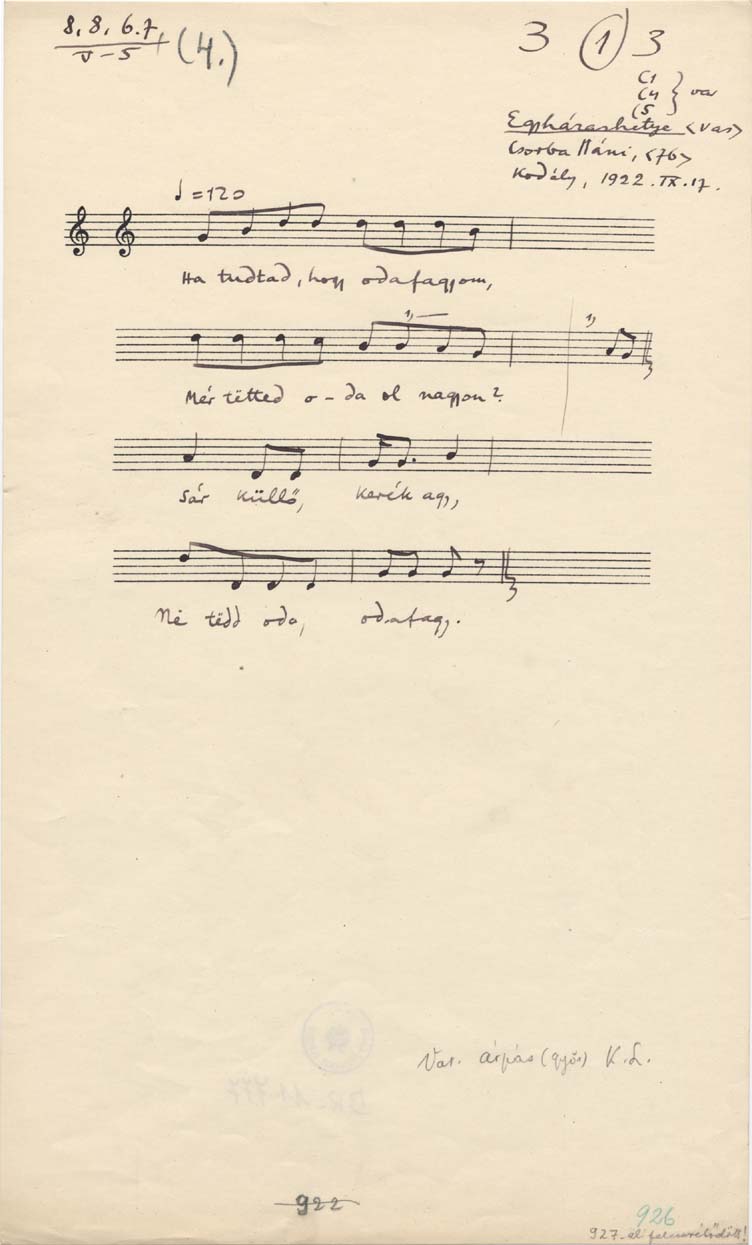 8, 8, 6. 7,
V - 5
(4.)
3 1 3
C1
C4 } var
C5
Egyházashetye <Vas>
Csorba Náni, <76>
Kodály, 1922. IX. 17.
♩ = 120
Ha tudtad, hogy odafagyom,
1,
1,
Mér tëtted o - da ol nagyon?
Sár küllő, kerék agy,
Në tëdd oda, odafagy.
Var. Árpás (Győr) K. L.
922
926
927-